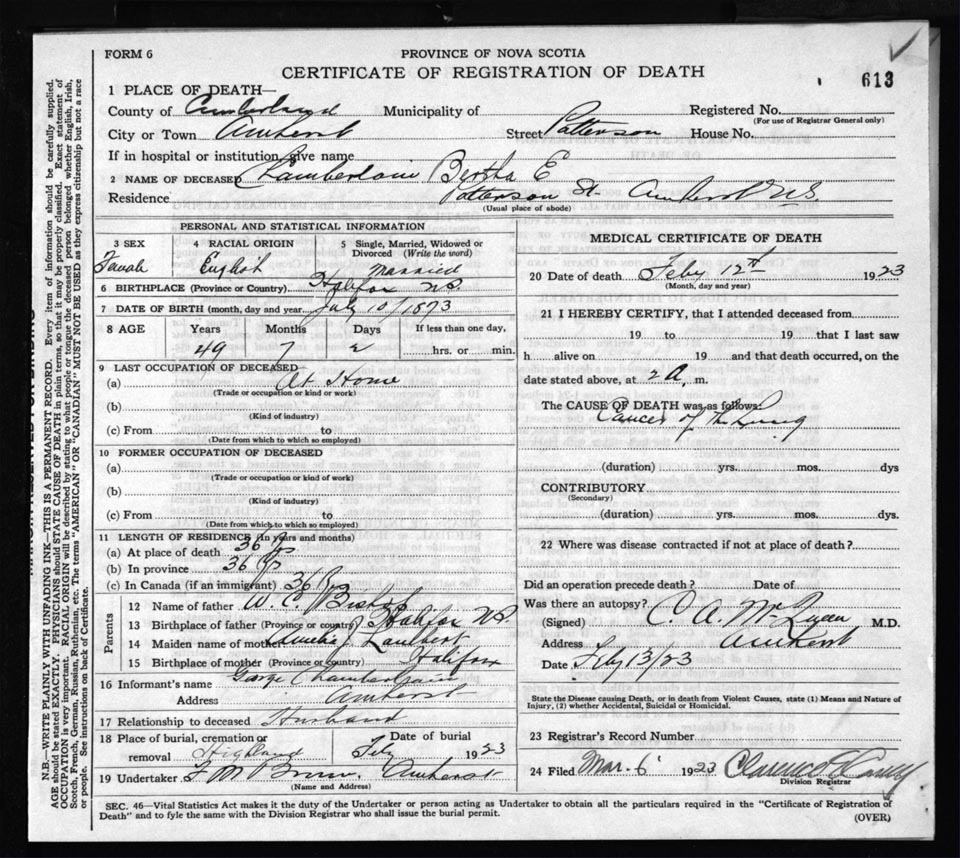 FORM 6
PROVINCE OF NOVA SCOTIA
CERTIFICATE OF REGISTRATION OF DEATH
613
1 PLACE OF DEATH—
County of Cumberland Municipality of Registered No.
(For use of Registrar General only)
City or Town Amherst Street Patterson House No.
If in hospital or institution, give name
2 NAME OF DECEASED Chamberlain Bertha E
Residence Patterson St. Amherst N.S.
(Usual place of abode)
PERSONAL AND STATISTICAL INFORMATION
3 SEX Female
4 RACIAL ORIGIN English
5 Single, Married, Widowed or Divorced (Write the word) Married
6 BIRTHPLACE (Province or Country) Halifax NS
7 DATE OF BIRTH (month, day and year) July 10/1873
8 AGE Years Months Days If less than one day,
49 7 2 hrs. or min.
9 LAST OCCUPATION OF DECEASED
(a) At Home
(Trade or occupation or kind of work)
(b)
(Kind of industry)
(c) From to
(Date from which to which so employed)
10 FORMER OCCUPATION OF DECEASED
(a)
(Trade or occupation or kind of work)
(b)
(Kind of industry)
(c) From to
(Date from which to which so employed)
11 LENGTH OF RESIDENCE (In years and months)
(a) At place of death 36 yrs
(b) In province 36 yrs
(c) In Canada (if an immigrant) 36 yrs
Parents
12 Name of father W. E. Bishop
13 Birthplace of father (Province or country) Halifax NS.
14 Maiden name of mother J. Lambert
15 Birthplace of mother (Province or country) Halifax
16 Informant's name George Chamberlain
Address Amherst
17 Relationship to deceased Husband
18 Place of burial, cremation or removal Highland
Date of burial Feby 1923
19 Undertaker Amherst
(Name and Address)
MEDICAL CERTIFICATE OF DEATH
20 Date of death Feby 12th 1923
(Month, day and year)
21 I HEREBY CERTIFY, that I attended deceased from
19 to 19 that I last saw
h alive on 19 and that death occurred, on the
date stated above, at 2 A. m.
The CAUSE OF DEATH was as follows:
Cancer of the Lung
(duration) yrs. mos. dys
CONTRIBUTORY
(Secondary)
(duration) yrs. mos. dys.
22 Where was disease contracted if not at place of death?
Did an operation precede death? Date of
Was there an autopsy?
(Signed) C. A. M.D.
Address Amherst
Date Feby 13/23
State the Disease causing Death, or in death from Violent Causes, state (1) Means and Nature of Injury, (2) whether Accidental, Suicidal or Homicidal.
23 Registrar's Record Number
24 Filed Mar. 6 1923 Clarence
Division Registrar
SEC. 46—Vital Statistics Act makes it the duty of the Undertaker or person acting as Undertaker to obtain all the particulars required in the "Certificate of Registration of
Death" and to fyle the same with the Division Registrar who shall issue the burial permit.
(OVER)
N.B.—WRITE PLAINLY WITH UNFADING INK—THIS IS A PERMANENT RECORD. Every item of information should be carefully supplied.
AGE should be stated EXACTLY. PHYSICIANS should STATE CAUSE OF DEATH in plain terms, so that it may be properly classified. Exact statement of
OCCUPATION is very important. RACIAL ORIGIN will be described by stating to what people or tongue the deceased person belonged whether English, Irish,
Scotch, French, German, Russian, Ruthenian, etc. The terms "AMERICAN" or "CANADIAN" MUST NOT BE USED as they express citizenship but not a race
or people. See instructions on back of Certificate.